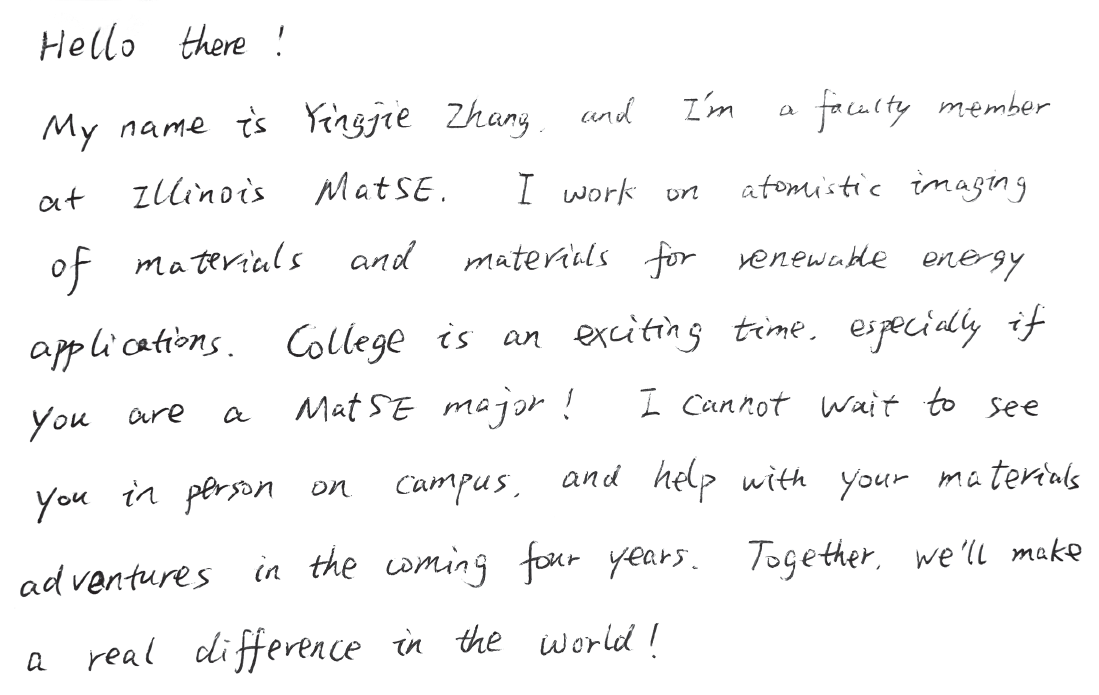 Hello there !
My name is Yingjie Zhang, and I'm a faculty member
at Illinois MatSE. I work on atomistic imaging
of materials and materials for renewable energy
applications. College is an exciting time, especially if
you are a MatSE major! I cannot wait to see
you in person on campus, and help with your materials
adventures in the coming four years. Together, we'll make
a real difference in the world!